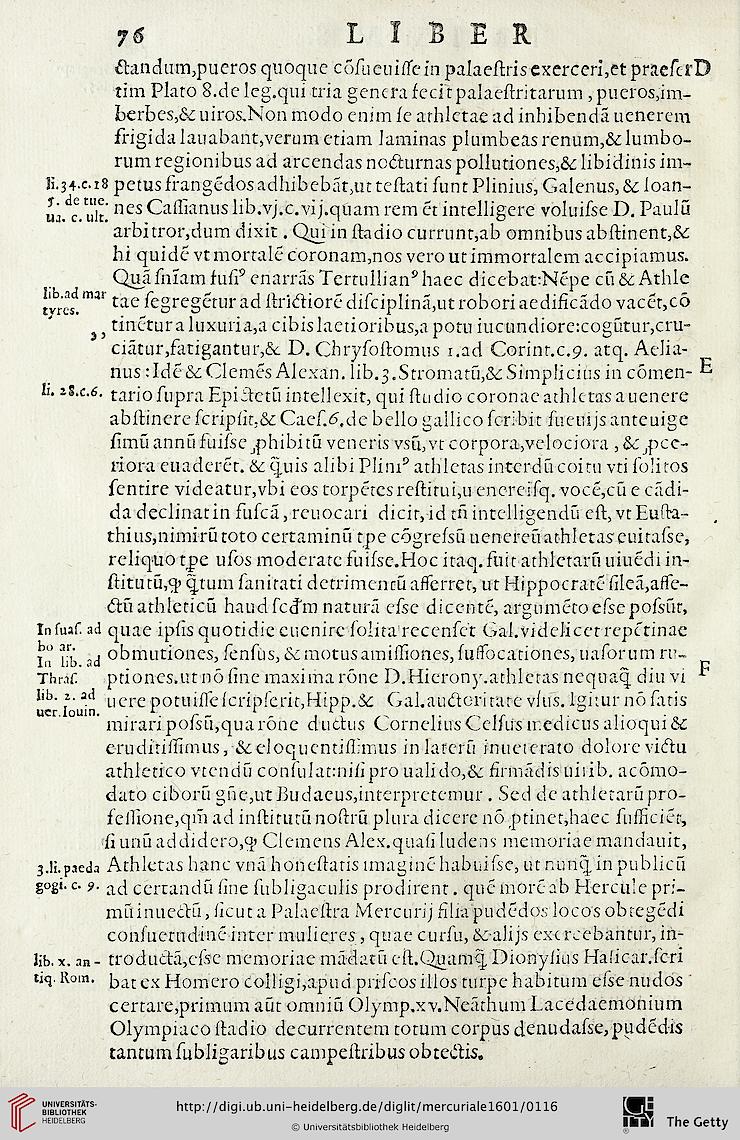 76 LIBER
ctandum,pueros quoque cõſueuiſſe in palaeſtris exerceri,et praeſer D
tim Plato 8.de leg.qui tria genera fecit palaeſtritarum , pueros,im-
berbes,& uiros.Non modo enim ſe athletae ad inhibendã uenerem
frigida lauabant,verum etiam laminas plumbeas renum,& lumbo-
rum regionibus ad arcendas nocturnas pollutiones,& libidinis im-
li.34.c.18 petus frangẽdos adhibebãt,ut teſtati ſunt Plinius, Galenus, & Ioan-
5. de tue.
ua. c. ult. nes Caſſianus lib.vj.c.vij.quam rem ẽt intelligere voluiſse D. Paulũ
arbitror,dum dixit . Qui in ſtadio currunt,ab omnibus abſtinent,&
hi quidẽ vt mortalẽ coronam,nos vero ut immortalem accipiamus.
Quã ſnĩam fuſiꝰ enarrãs Tertullianꝰ haec dicebat:Nẽpe cũ & Athle
lib.ad mar
tyres. tae ſegregẽtur ad ſtrictiorẽ diſciplinã,ut robori aedificãdo vacẽt,cõ
„ tinẽtur a luxuria,a cibis laetioribus,a potu iucundiore:cogũtur,cru-
ciãtur,fatigantur,& D. Chryſoſtomus 1.ad Corint.c.9. atq. Aelia-
nus : Idẽ & Clemẽs Alexan. lib.3.Stromatũ,& Simplicius in cõmen- E
li. 28.c.6. tario ſupra Epictetũ intellexit, qui ſtudio coronae athletas a uenere
abſtinere ſcripſit,& Caeſ.6.de bello gallico ſcribit ſueuijs ante uige
ſimũ annũ fuiſse ꝓhibitũ veneris vsũ,vt corpora,velociora , & ꝓce-
riora euaderẽt. & q̃uis alibi Pliniꝰ athletas interdũ coitu vti ſolitos
ſentire videatur,vbi eos torpẽtes reſtitui,uenereiſq. vocẽ,cũ e cãdi-
da declinat in fuſcã, reuocari dicit, id tñ intelligendũ eſt, vt Euſta-
thius,nimirũ toto certaminũ tꝑe cõgreſsũ uenereũ athletas euitaſse,
reliquo tꝑe uſos moderate fuiſse.Hoc itaq. fuit athletarũ uiuẽdi in-
ſtitutũ,ꝙ q̃tum ſanitati detrimentũ afferret, ut Hippocratẽ ſileã,affe-
ctũ athleticũ haud ſcđm naturã eſse dicentẽ, argumẽto eſse poſsũt,
In ſuaſ. ad
bo ar. quae ipſis quotidie euenire ſolita recenſet Gal.videlicet repẽtinae
In lib. ad
Thraſ. obmutiones, ſenſus, & motus amiſſiones, ſuffocationes, uaſorum ru-
ptiones.ut nõ ſine maxima rõne D.Hierony.athletas nequaq̃ diu vi F
lib. 2. ad
uer.Iouin. uere potuiſse ſcripſerit,Hipp.& Gal.auctoritate vſus. Igitur nõ ſatis
mirari poſsũ,qua rõne ductus Cornelius Celſus medicus alioqui &
eruditiſſimus, & eloquentiſſimus in laterũ inueterato dolore victu
athletico vtendũ conſulat:niſi pro ualido,& firmãdis uirib. acõmo-
dato ciborũ gñe,ut Budaeus,interpretemur . Sed de athletarũ pro-
feſſione,qm̃ ad inſtitutũ noſtrũ plura dicere nõ ꝑtinet,haec ſufficiẽt,
ſi unũ addidero,ꝙ Clemens Alex.quaſi ludens memoriae mandauit,
3.li.paeda
gogi. c. 9. Athletas hanc vnã honeſtatis imaginẽ habuiſse, ut nunq̃ in publicũ
ad certandũ ſine ſubligaculis prodirent . quẽ morẽ ab Hercule pri-
mũ inuectũ, ſicut a Palaeſtra Mercurij filia pudẽdos locos obtegẽdi
conſuetudinẽ inter mulieres , quae curſu, & alijs exercebantur, in-
lib. x. an-
tiq. Rom. troductã,eſse memoriae mãdatũ eſt.Quamq̃ Dionyſius Halicar.ſcri
bat ex Homero colligi,apud priſcos illos turpe habitum eſse nudos
certare,primum aũt omniũ Olymp.xv.Neãthum Lacedaemonium
Olympiaco ſtadio decurrentem totum corpus denudaſse, pudẽdis
tantum ſubligaribus campeſtribus obtectis.
UNIVERSITÄTS-
BIBLIOTHEK
HEIDELBERG
http://digi.ub.uni-heidelberg.de/diglit/mercuriale1601/0116
© Universitätsbibliothek Heidelberg
The Getty